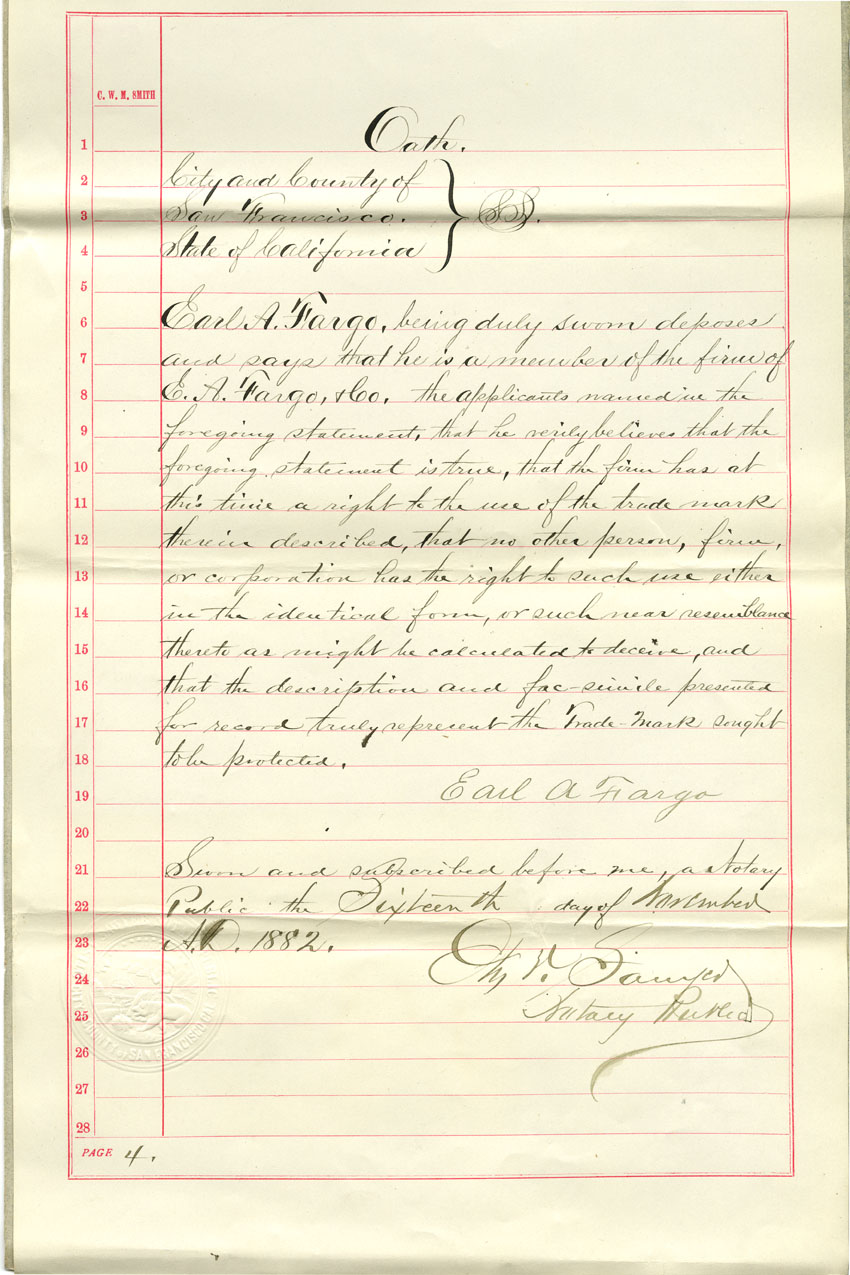 C. W. M. SMITH
1 Oath.
2 City and County of
3 San Francisco. } SS.
4 State of California
5
6 Earl A. Fargo, being duly sworn deposes
7 and says that he is a member of the firm of
8 E. A. Fargo, & Co. the applicants named in the
9 foregoing statement, that he verily believes that the
10 foregoing statement is true, that the firm has at
11 this time a right to the use of the trade mark
12 therein described, that no other person, firm,
13 or corporation has the right to such use either
14 in the identical form, or such near resemblance
15 thereto as might be calculated to deceive, and
16 that the description and fac-simile presented
17 for record truly represent the Trade-Mark sought
18 to be protected.
19 Earl A Fargo
20
21 Sworn and subscribed before me, a Notary
22 Public the Sixteenth day of November
23 A.D. 1882.
24
25 Notary Public
26
27
28
PAGE 4.